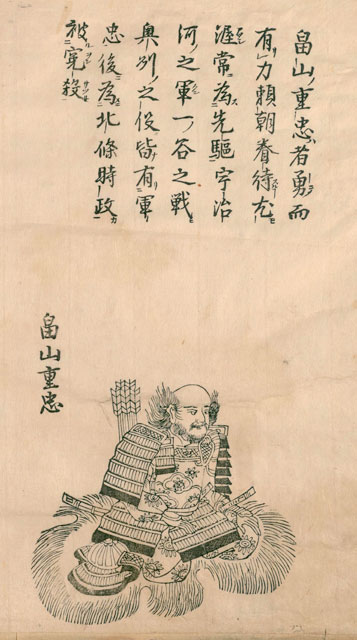 畠山重忠者勇而
有力頼朝眷待尤
渥常為先驅宇治
河之軍一谷之戰
奥州之役皆有軍
忠後為北條時政
被寃殺
畠山重忠